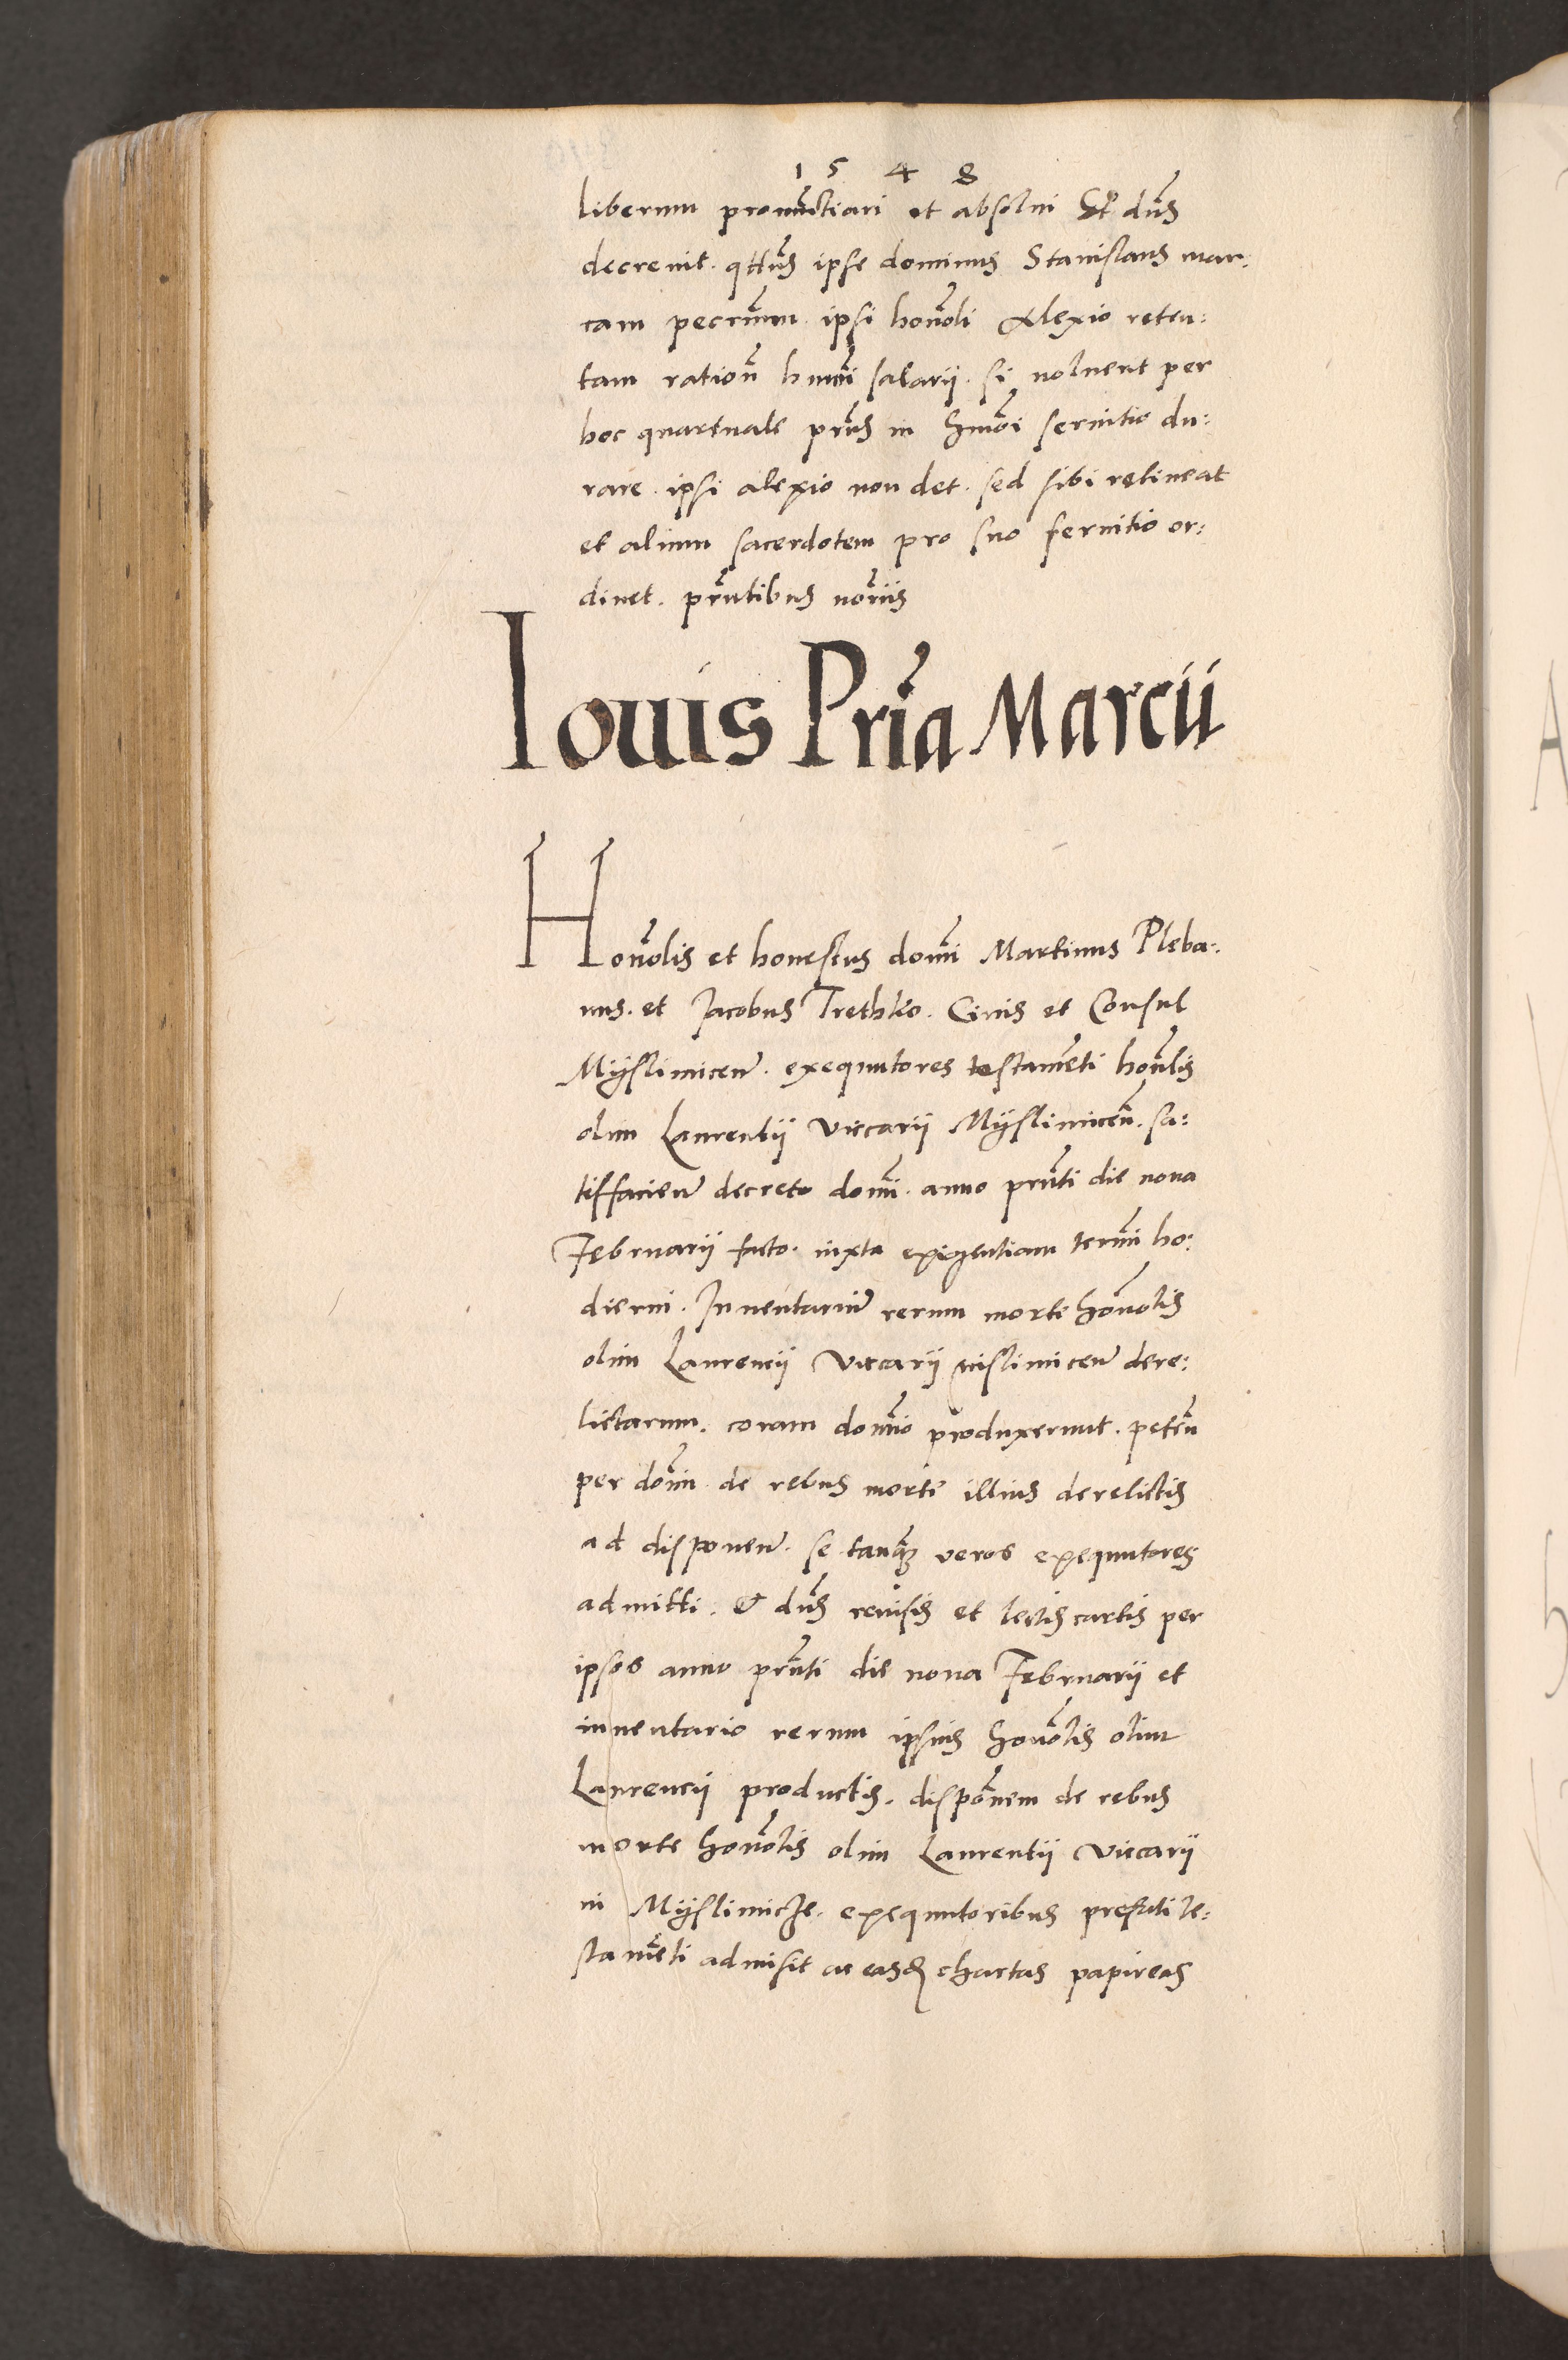 1 5 4 8
liberum pronu͂ctiari et absolui Et du͂s
decreuit. qtt͂us ipse dominus Stanislaus mar:
cam pecun͂iam ipsi hono͂li Alexio reten:
tam ration͂ hmo͂i salarii. si noluerit per
hoc quartuale pn͂s in hmo͂i seruitio du:
rare. ipsi alexio non det. sed sibi retineat
et alium sacerdotem pro suo seruitio or:
dinet. pn͂tibus nor͂iis
Iouis Pri͂a Marcii
Honor͂lis et honestus domi͂ Martinus Pleba:
nus. et Jacobus Trethko. Ciuis et Consul
Myslimicen͂. exequutores testame͂ti hono͂lis
olim Laurentii viccarii Myslimicen͂. sa:
tisfacien͂ decreto domi͂. anno pn͂ti die nona
Februarii facto. iuxta exigentiam termi͂ ho:
dierni. Inuentariu͂ rerum morte hono͂lis
olim Laurencii viccarii mislimicen͂ dere:
lictarum. coram domi͂o produxerunt. peten͂
per dom͂. de rebus morte illius derelictis
ad disponen͂. se tanq͂ veros exequutores
admitti. & du͂s reuisis et lectis cartis per
ipsos anno pn͂ti die nona Februarii et
inuentario rerum ipsius hono͂lis olim
Laurencii productis. dispo͂nem de rebus
morte hono͂lis olim Laurentii viccarii
in Myslimicze. exequutoribus prefati te:
stame͂ti admisit ac easd͂ chartas papireas